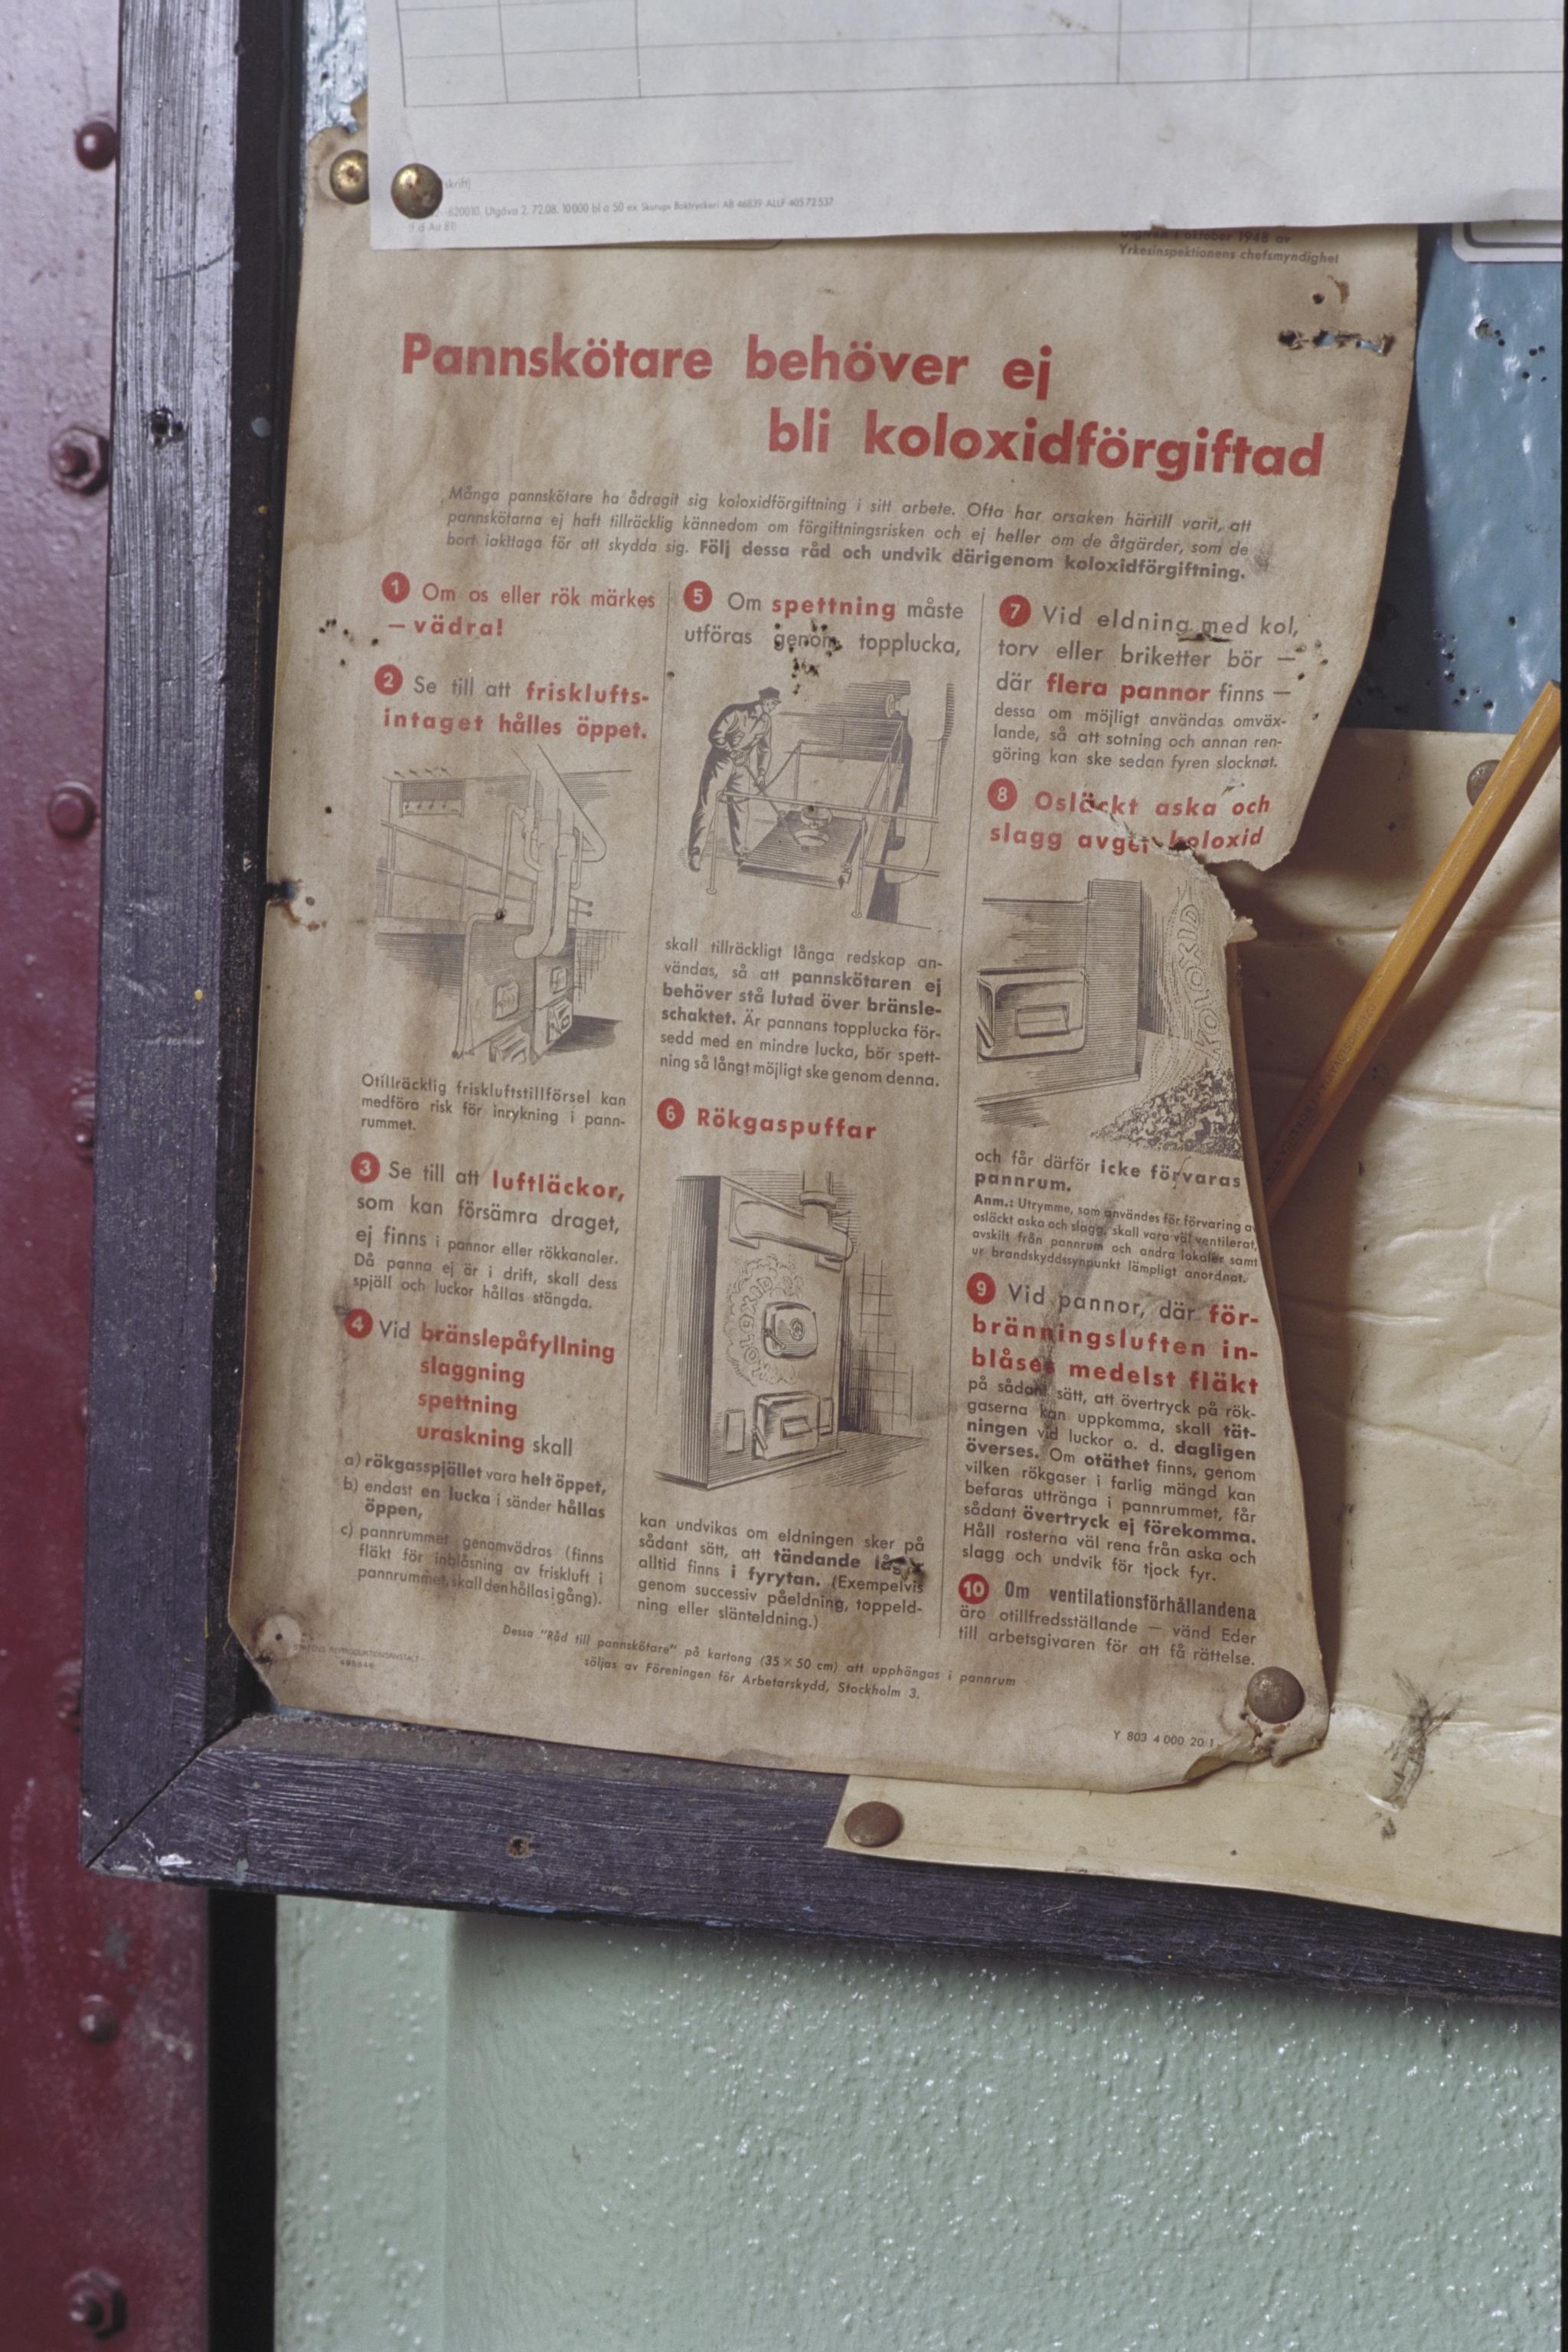 skrift)
620010. Utgåva 2. 72.08. 10000 bl a 50 ex. Skurups Boktryckeri AB 46839 ALLF 405 72 537
oktober 1948 av
Yrkesinspektionens chefsmyndighet
Pannskötare behöver ej
bli koloxidförgiftad
Många pannskötare ha ådragit sig koloxidförgiftning i sitt arbete. Ofta har orsaken härtill varit, att
pannskötarna ej haft tillräcklig kännedom om förgiftningsrisken och ej heller om de åtgärder, som de
bort iakttaga för att skydda sig. Följ dessa råd och undvik därigenom koloxidförgiftning.
1 Om os eller rök märkes
— vädra!
2 Se till att frisklufts-
intaget hålles öppet.
Otillräcklig friskluftstillförsel kan
medföra risk för inrykning i pann-
rummet.
3 Se till att luftläckor,
som kan försämra draget,
ej finns i pannor eller rökkanaler.
Då panna ej är i drift, skall dess
spjäll och luckor hållas stängda.
4 Vid bränslepåfyllning
slaggning
spettning
uraskning skall
a) rökgasspjället vara helt öppet,
b) endast en lucka i sänder hållas
öppen,
c) pannrummet genomvädras (finns
fläkt för inblåsning av friskluft i
pannrummet, skall den hållas i gång).
5 Om spettning måste
utföras genom topplucka,
skall tillräckligt långa redskap an-
vändas, så att pannskötaren ej
behöver stå lutad över bränsle-
schaktet. Är pannans topplucka för-
sedd med en mindre lucka, bör spett-
ning så långt möjligt ske genom denna.
6 Rökgaspuffar
KOLOXID
kan undvikas om eldningen sker på
sådant sätt, att tändande låga
alltid finns i fyrytan. (Exempelvis
genom successiv påeldning, toppeld-
ning eller slänteldning.)
7 Vid eldning med kol,
torv eller briketter bör —
där flera pannor finns —
dessa om möjligt användas omväx-
lande, så att sotning och annan ren-
göring kan ske sedan fyren slocknat.
8 Osläckt aska och
slagg avger koloxid
KOLOXID
och får därför icke förvaras
pannrum.
Anm.: Utrymme, som användes för förvaring av
osläckt aska och slagg, skall vara väl ventilerat,
avskilt från pannrum och andra lokaler samt
ur brandskyddssynpunkt lämpligt anordnat.
9 Vid pannor, där för-
bränningsluften in-
blåses medelst fläkt
på sådant sätt, att övertryck på rök-
gaserna kan uppkomma, skall tät-
ningen vid luckor o. d. dagligen
överses. Om otäthet finns, genom
vilken rökgaser i farlig mängd kan
befaras uttränga i pannrummet, får
sådant övertryck ej förekomma.
Håll rosterna väl rena från aska och
slagg och undvik för tjock fyr.
10 Om ventilationsförhållandena
äro otillfredsställande — vänd Eder
till arbetsgivaren för att få rättelse.
Dessa "Råd till pannskötare" på kartong (35 × 50 cm) att upphängas i pannrum
säljas av Föreningen för Arbetarskydd, Stockholm 3.
REPRODUKTIONSANSTALT
Y 803 4 000 20 1